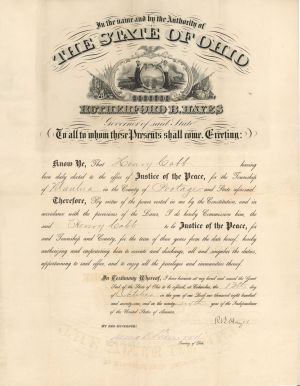 In the name and by the Authority of
THE STATE OF OHIO
RUTHERFORD B. HAYES
Governor of said State
To all to whom these Presents shall come, Greeting:
Know Ye, That Henry Cobb having
been duly elected to the office of Justice of the Peace, for the Township
of Mantua in the County of Portage and State aforesaid
Therefore, By virtue of the power vested in me by the Constitution, and in
accordance with the provisions of the Laws, I do hereby Commission him, the
said Henry Cobb to be Justice of the Peace, for
said Township and County, for the term of three years from the date hereof; hereby
authorizing and empowering him to execute and discharge, all and singular the duties,
appertaining to said office, and to enjoy all the privileges and immunities thereof.
In Testimony Whereof, I have hereunto set my hand and caused the Great
Seal of the State of Ohio to be affixed, at Columbus, the
day
of October in the year of our Lord one thousand eight hundred
and seventy-one, and in the ninety-sixth year of the Independence
of the United States of America.
R B Hayes
BY THE GOVERNOR:
Secretary of State.